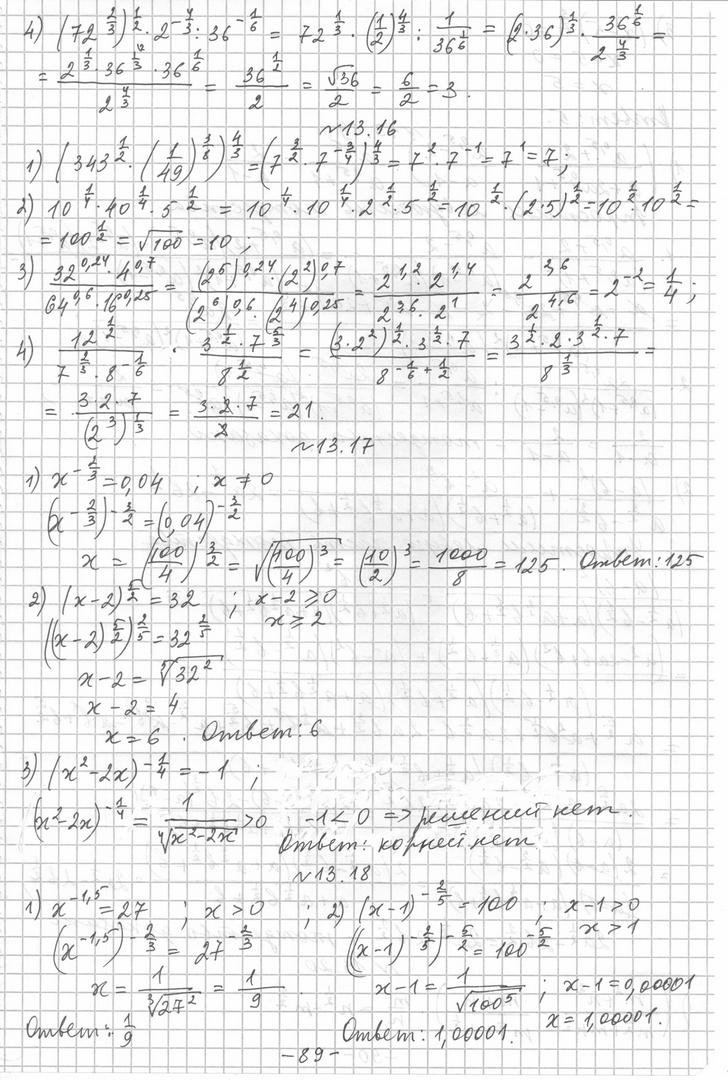 4) (72^(2/3))^(1/2) · 2^(-4/3) : 36^(-1/6) = 72^(1/3) · (1/2)^(4/3) : 1/36^(1/6) = (2·36)^(1/3) · 36^(1/6)/2^(4/3) =
= (2^(1/3) · 36^(1/3) · 36^(1/6))/2^(4/3) = 36^(1/2)/2 = √36/2 = 6/2 = 3.
№13.16
1) (343^(1/2) · (1/49)^(3/8))^(4/3) = (7^(3/2) · 7^(-3/4))^(4/3) = 7^2 · 7^(-1) = 7^1 = 7;
2) 10^(1/4) · 40^(1/4) · 5^(1/2) = 10^(1/4) · 10^(1/4) · 2^(1/2) · 5^(1/2) = 10^(1/2) · (2·5)^(1/2) = 10^(1/2) · 10^(1/2) =
= 100^(1/2) = √100 = 10;
3) (32^(0,24) · 4^(0,7))/(64^(0,6) · 16^(0,25)) = ((2^5)^(0,24) · (2^2)^(0,7))/((2^6)^(0,6) · (2^4)^(0,25)) = (2^(1,2) · 2^(1,4))/(2^(3,6) · 2^1) = 2^(2,6)/2^(4,6) = 2^(-2) = 1/4;
4) 12^(1/2)/(7^(2/3) · 8^(-1/6)) · (3^(1/2) · 7^(5/3))/8^(1/2) = ((3·2^2)^(1/2) · 3^(1/2) · 7)/8^(-1/6+1/2) = (3^(1/2) · 2 · 3^(1/2) · 7)/8^(1/3) =
= (3·2·7)/(2^3)^(1/3) = (3·2·7)/2 = 21.
№13.17
1) x^(-2/3) = 0,04 ; x ≠ 0
(x^(-2/3))^(-3/2) = (0,04)^(-3/2)
x = (100/4)^(3/2) = √((100/4)^3) = (10/2)^3 = 1000/8 = 125. Ответ: 125
2) (x-2)^(5/2) = 32 ; x-2 ⩾ 0
x ⩾ 2
((x-2)^(5/2))^(2/5) = 32^(2/5)
x-2 = ⁵√(32^2)
x-2 = 4
x = 6 . Ответ: 6
3) (x^2-2x)^(-1/4) = -1 ;
(x^2-2x)^(-1/4) = 1/⁴√(x^2-2x) > 0 -1 < 0 => решений нет.
Ответ: корней нет
№13.18
1) x^(-1,5) = 27 ; x > 0 ; 2) (x-1)^(-2/5) = 100 ; x-1 > 0
x > 1
(x^(-1,5))^(-2/3) = 27^(-2/3) ((x-1)^(-2/5))^(-5/2) = 100^(-5/2)
x = 1/³√(27^2) = 1/9 . x-1 = 1/√(100^5) ; x-1 = 0,00001
x = 1,00001.
Ответ: 1/9 Ответ: 1,00001.
-89-